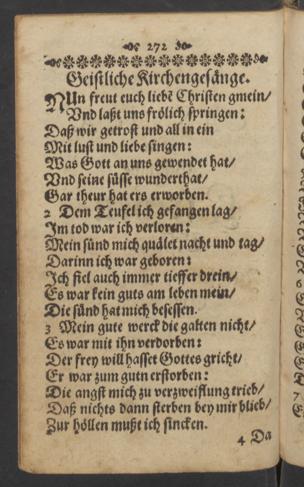 272
Geistliche Kirchengesänge.
NUn freut euch liebē Christen gmein/
Vnd laßt uns frölich springen:
Daß wir getrost und all in ein
Mit lust und liebe singen:
Was Gott an uns gewendet hat/
Vnd seine süsse wunderthat/
Gar theur hat ers erworben.
2 Dem Teufel ich gefangen lag/
Im tod war ich verloren:
Mein sünd mich quälet nacht und tag/
Darinn ich war geboren:
Ich fiel auch immer tieffer drein/
Es war kein guts am leben mein/
Die sünd hat mich besessen.
3 Mein gute werck die galten nicht/
Es war mit ihn verdorben:
Der frey will hasset Gottes gricht/
Er war zum gutn erstorben:
Die angst mich zu verzweiflung trieb/
Daß nichts dann sterben bey mir blieb/
Zur höllen mußt ich sincken.
4 Da